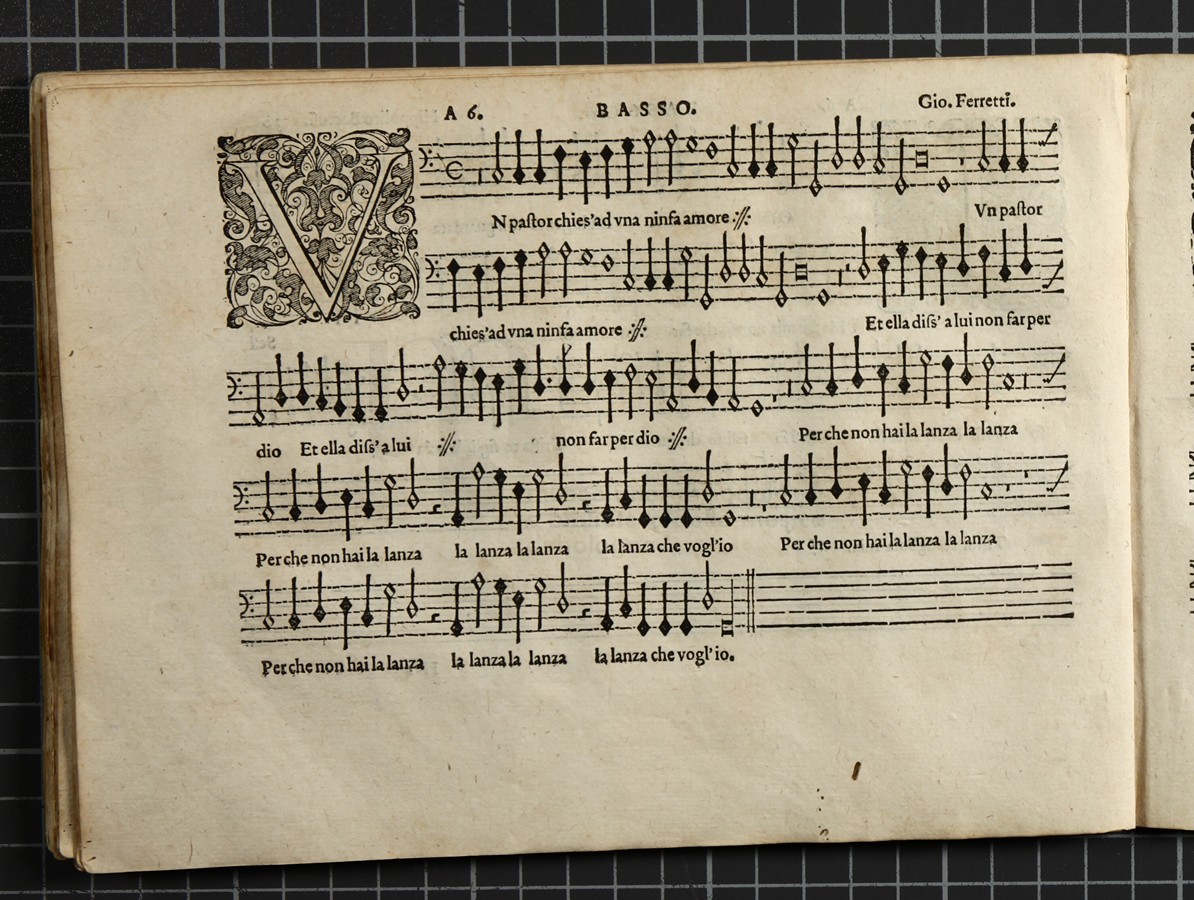 A 6. BASSO. Gio. Ferretti.
VN pastor chies'ad vna ninfa amore :||: Vn pastor
chies'ad vna ninfa amore :||: Et ella diss' a lui non far per
dio Et ella diss' a lui :||: non far per dio :||: Per che non hai la lanza la lanza
Per che non hai la lanza la lanza la lanza la lanza che vogl'io Per che non hai la lanza la lanza
Per che non hai la lanza la lanza la lanza la lanza che vogl'io.